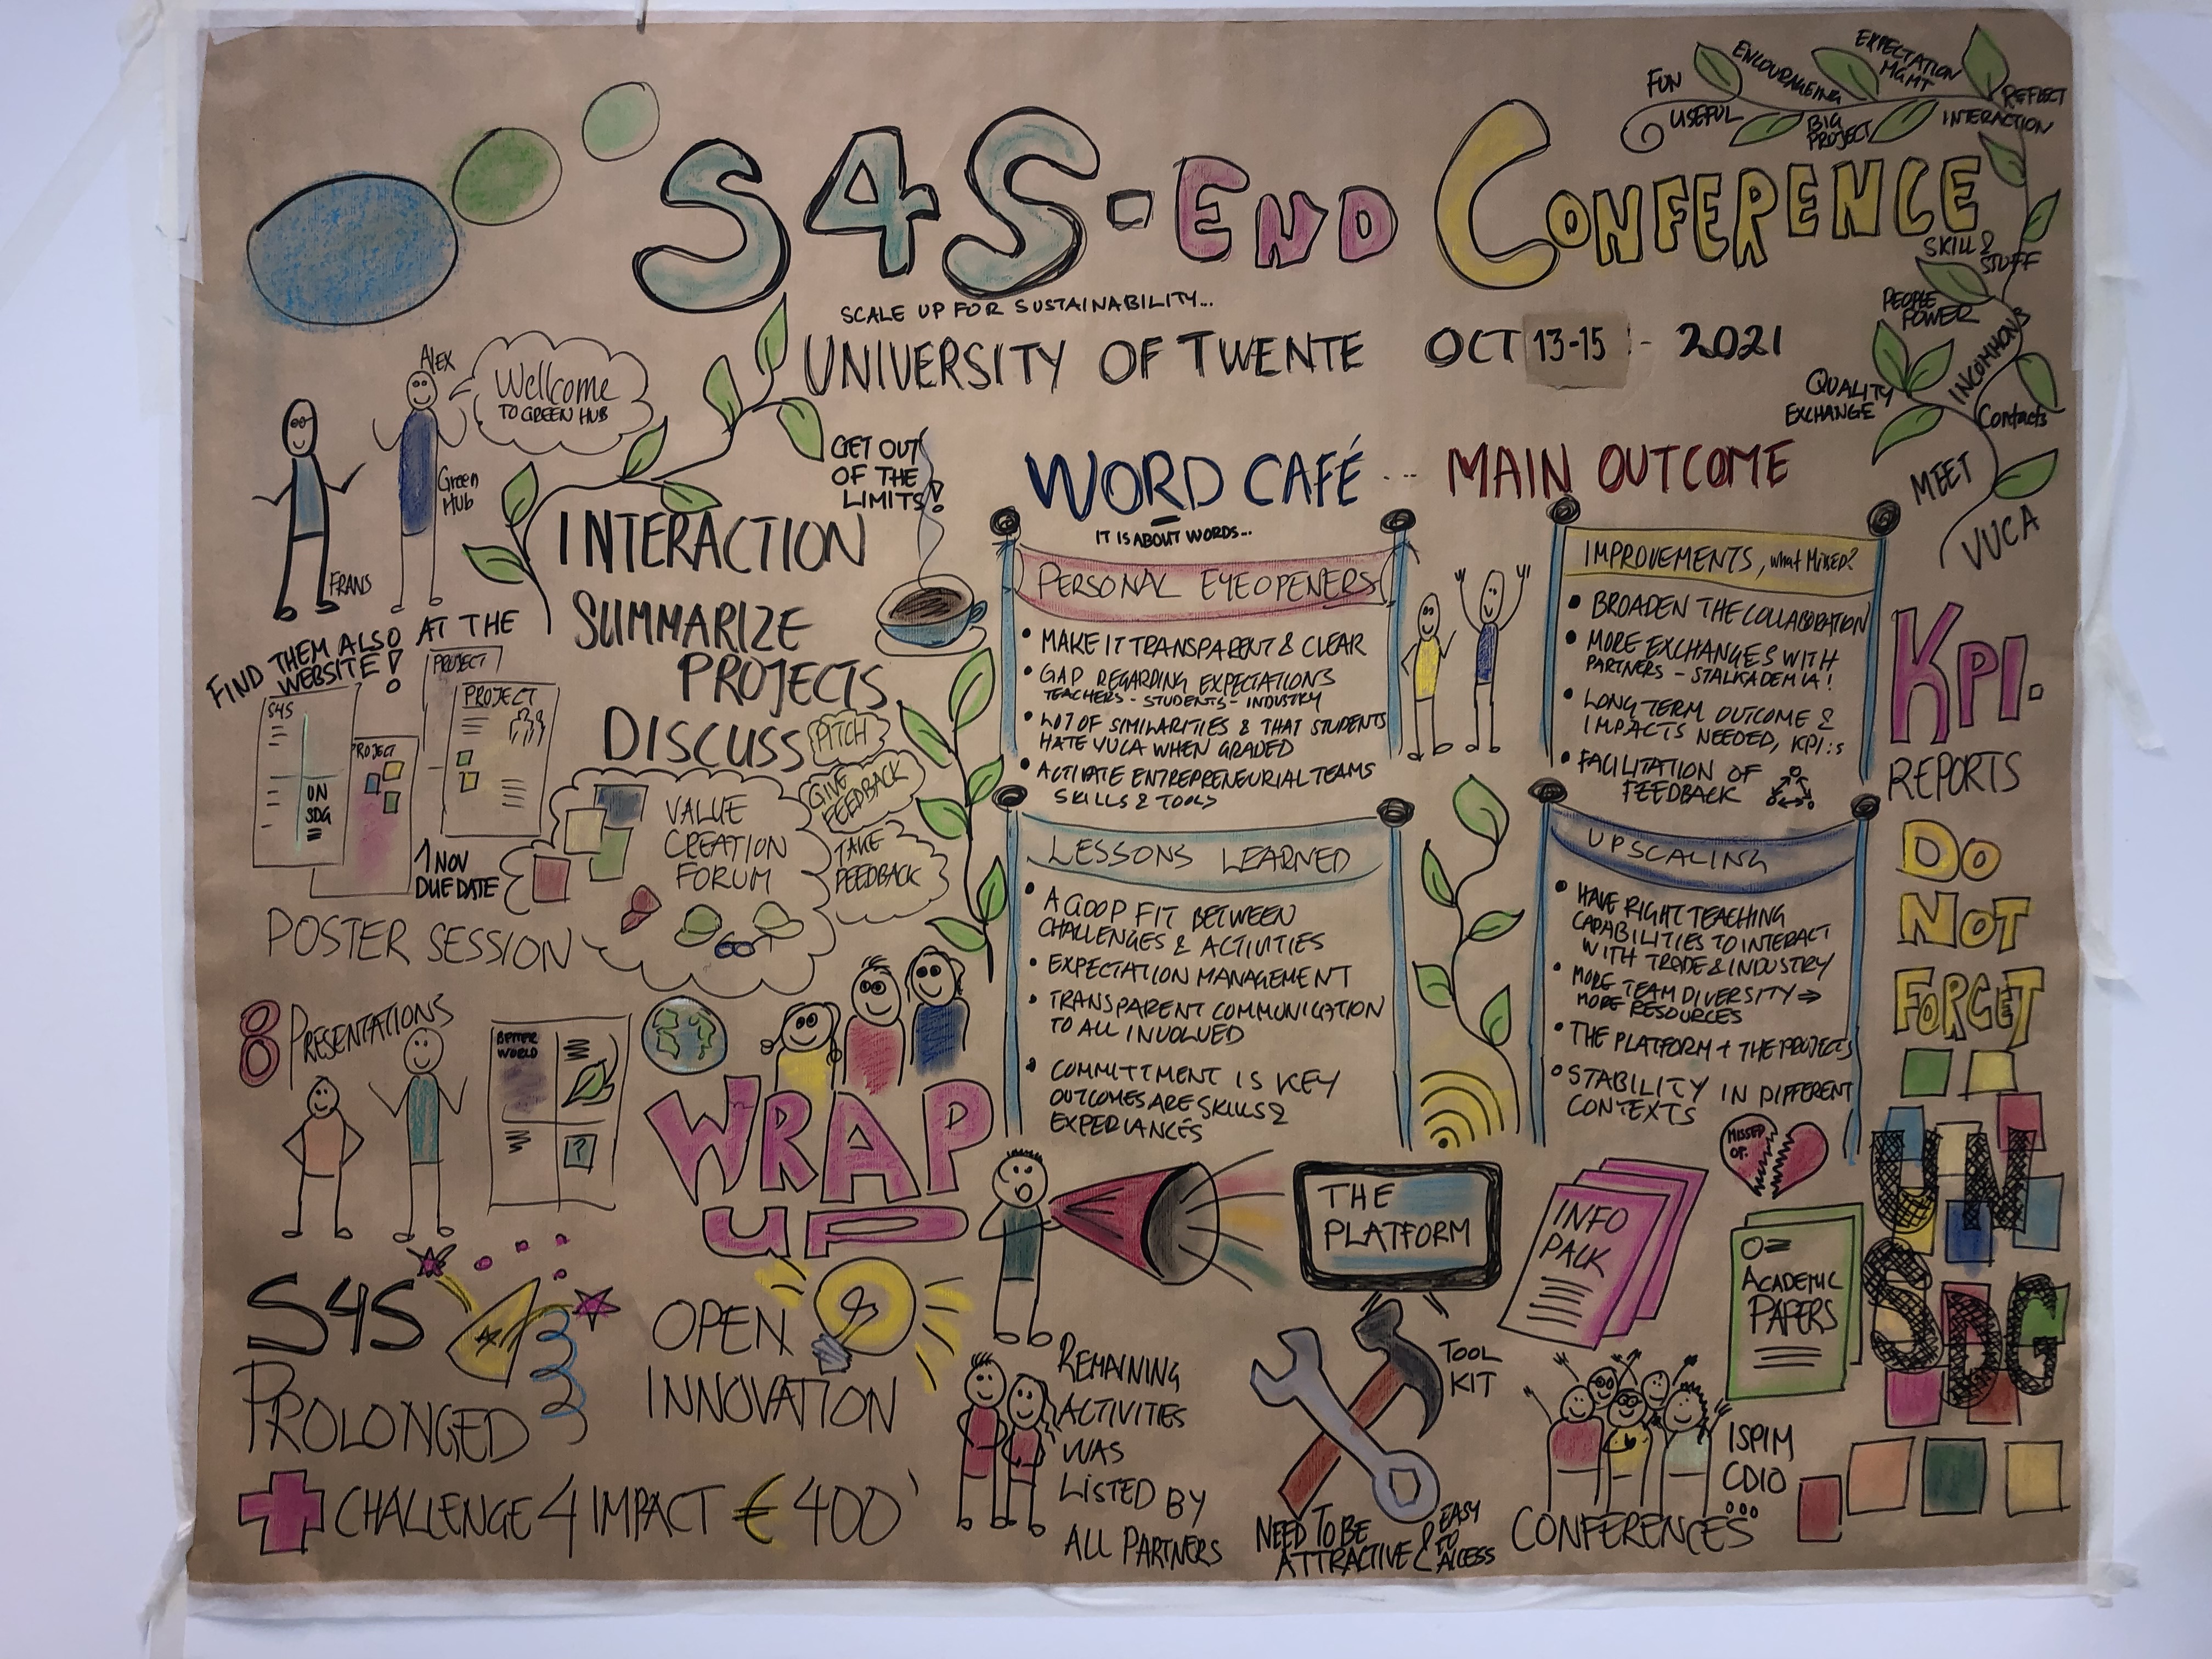 S4S - END CONFERENCE
SCALE UP FOR SUSTAINABILITY...
UNIVERSITY OF TWENTE OCT 13-15 - 2021
FUN
USEFUL
ENCOURAGEING
BIG
PROJECT
EXPECTATION
MGMT
REFLECT
INTERACTION
SKILL &
STUFF
PEOPLE
POWER
INCOMMONS
QUALITY
EXCHANGE
Contacts
MEET
VUCA
ALEX
Wellcome
TO GREEN HUB
Green
HUB
FRANS
GET OUT
OF THE
LIMITS!
INTERACTION
SUMMARIZE
PROJECTS
DISCUSS
PITCH
GIVE
FEEDBACK
TAKE
FEEDBACK
VALUE
CREATION
FORUM
FIND THEM ALSO AT THE
WEBSITE!
S4S
UN
SDG
PROJECT
PROJECT
PROJECT
1 NOV
DUE DATE
POSTER SESSION
8 PRESENTATIONS
BETTER
WORLD
?
WORD CAFÉ ... MAIN OUTCOME
IT IS ABOUT WORDS...
PERSONAL EYEOPENERS
• MAKE IT TRANSPARENT & CLEAR
• GAP REGARDING EXPECTATIONS
TEACHERS - STUDENTS - INDUSTRY
• LOT OF SIMILARITIES & THAT STUDENTS
HATE VUCA WHEN GRADED
• ACTIVATE ENTREPRENEURIAL TEAMS
SKILLS & TOOLS
IMPROVEMENTS, what Missed?
• BROADEN THE COLLABORATION
• MORE EXCHANGES WITH
PARTNERS - STALKADEMIA!
• LONG TERM OUTCOME &
IMPACTS NEEDED, KPI:s
• FACILITATION OF
FEEDBACK
LESSONS LEARNED
• A GOOD FIT BETWEEN
CHALLENGES & ACTIVITIES
• EXPECTATION MANAGEMENT
• TRANSPARENT COMMUNICATION
TO ALL INVOLVED
• COMMITTMENT IS KEY
OUTCOMES ARE SKILLS &
EXPERIANCES
UPSCALING
• HAVE RIGHT TEACHING
CAPABILITIES TO INTERACT
WITH TRADE & INDUSTRY
• MORE TEAM DIVERSITY ⇒
MORE RESOURCES
• THE PLATFORM + THE PROJECTS
• STABILITY IN DIFFERENT
CONTEXTS
KPI.
REPORTS
DO
NOT
FORGET
UN
SDG
WRAP
UP
THE
PLATFORM
INFO
PACK
MISSED
OF.
ACADEMIC
PAPERS
S4S
PROLONGED
+ CHALLENGE 4 IMPACT € 400'
OPEN
INNOVATION
REMAINING
ACTIVITIES
WAS
LISTED BY
ALL PARTNERS
TOOL
KIT
NEED TO BE
ATTRACTIVE & EASY
TO
ACCESS
ISPIM
CDIO
...
CONFERENCES